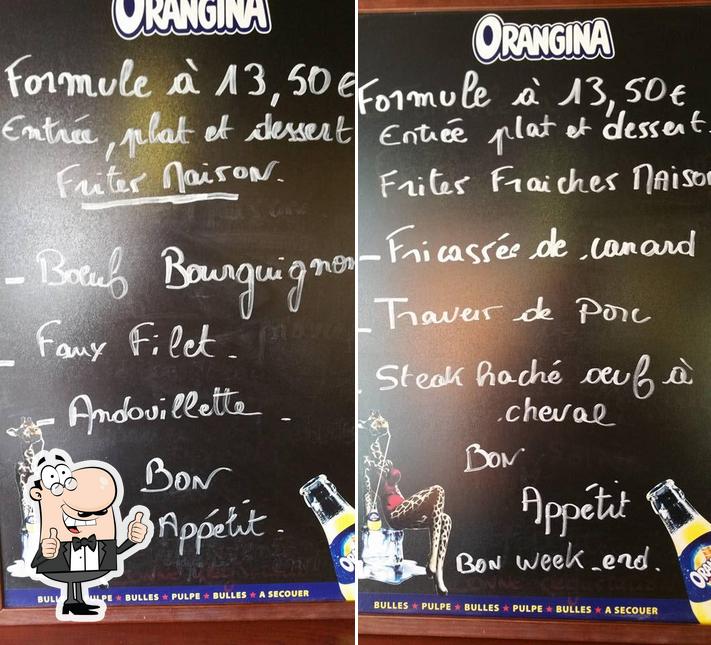 ORANGINA
Formule à 13,50€
Entrée, plat et dessert
Frites Maison.
- Bœuf Bourguignon
- Faux Filet -
- Andouillette -
Bon
Appétit -
BULLES ★ PULPE ★ BULLES ★ PULPE ★ BULLES ★ A SECOUER
ORANGINA
Formule à 13,50€
Entrée plat et dessert.
Frites Fraiches Maison
- Fricassée de canard
- Travers de Porc
- Steak haché œuf à
cheval
Bon
Appétit
Bon week-end.
BULLES ★ PULPE ★ BULLES ★ PULPE ★ BULLES ★ A SECOUER